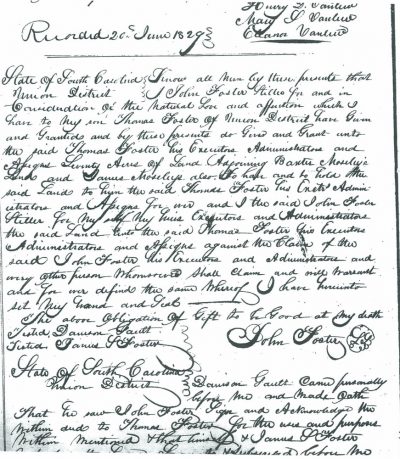 Henry L Vanlew
Mary L Vanlew
Eleanor Vanlew
Recorded 20th June 1829
State of South Carolina Know all Men by these presents that
Union District I John Foster Stiller for and in
Consideration of the Natural Love and affection which I
have to my son Thomas Foster of Union District have Given
and Granted and by these presents do Give and Grant unto
the said Thomas Foster his Executors Administrators and
Assigns Seventy Acres of Land Adjoining Baxter Moseley's
Land and James Moseleys also To have and to hold the
said Land to him the said Thomas Foster his Exets Admin-
istrators and Assigns for ever and I the said John Foster
Stiller for My self My heirs Executors and Administrators
the said Land Unto the said Thomas Foster his Executors
Administrators and Assigns against the Claim of the
said John Foster his Executors and Administrators and
every other person Whomsoever Shall Claim and will Warrant
and for ever defend the same Whereof I have hereunto
set My hand and Seal
The above Obligation of Gift to be Good at my death
Testd Dawson Gault
Testd James S Foster
John Foster
State of South Carolina
Union District Dawson Gault Came personally
before Me and Made Oath
That he saw John Foster Sign and Acknowledge the
Within deed to Thomas Foster for the use and purpose
Within Mentioned & that himself & James S Foster
before Me